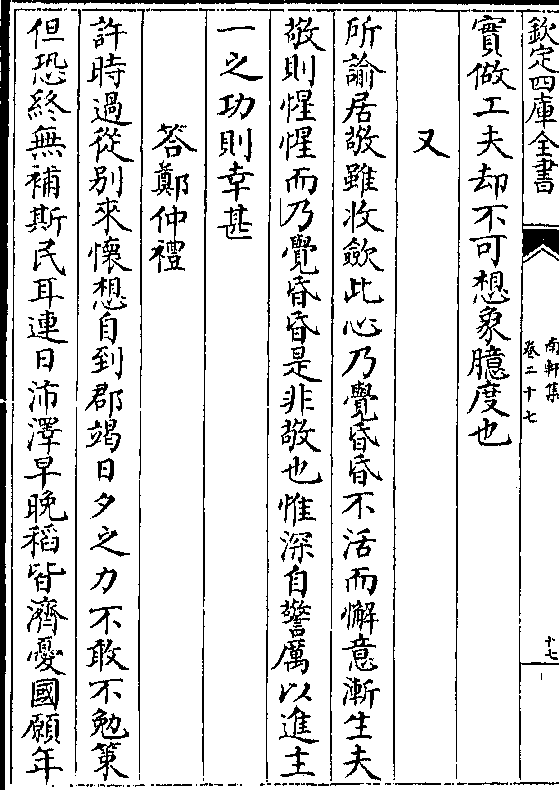 欽定四庫全書
南軒集
卷二十七
十七
實做工夫却不可想象臆度也
又
所諭居敬雖收斂此心乃覺昏昏不活而懈意漸生夫
敬則惺惺而乃覺昏昏是非敬也惟深自警厲以進主
一之功則幸甚
答鄭仲禮
許時過從别來懷想自到郡竭日夕之力不敢不勉第
但恐終無補斯民耳連日沛澤早晚稻皆濟憂國願年